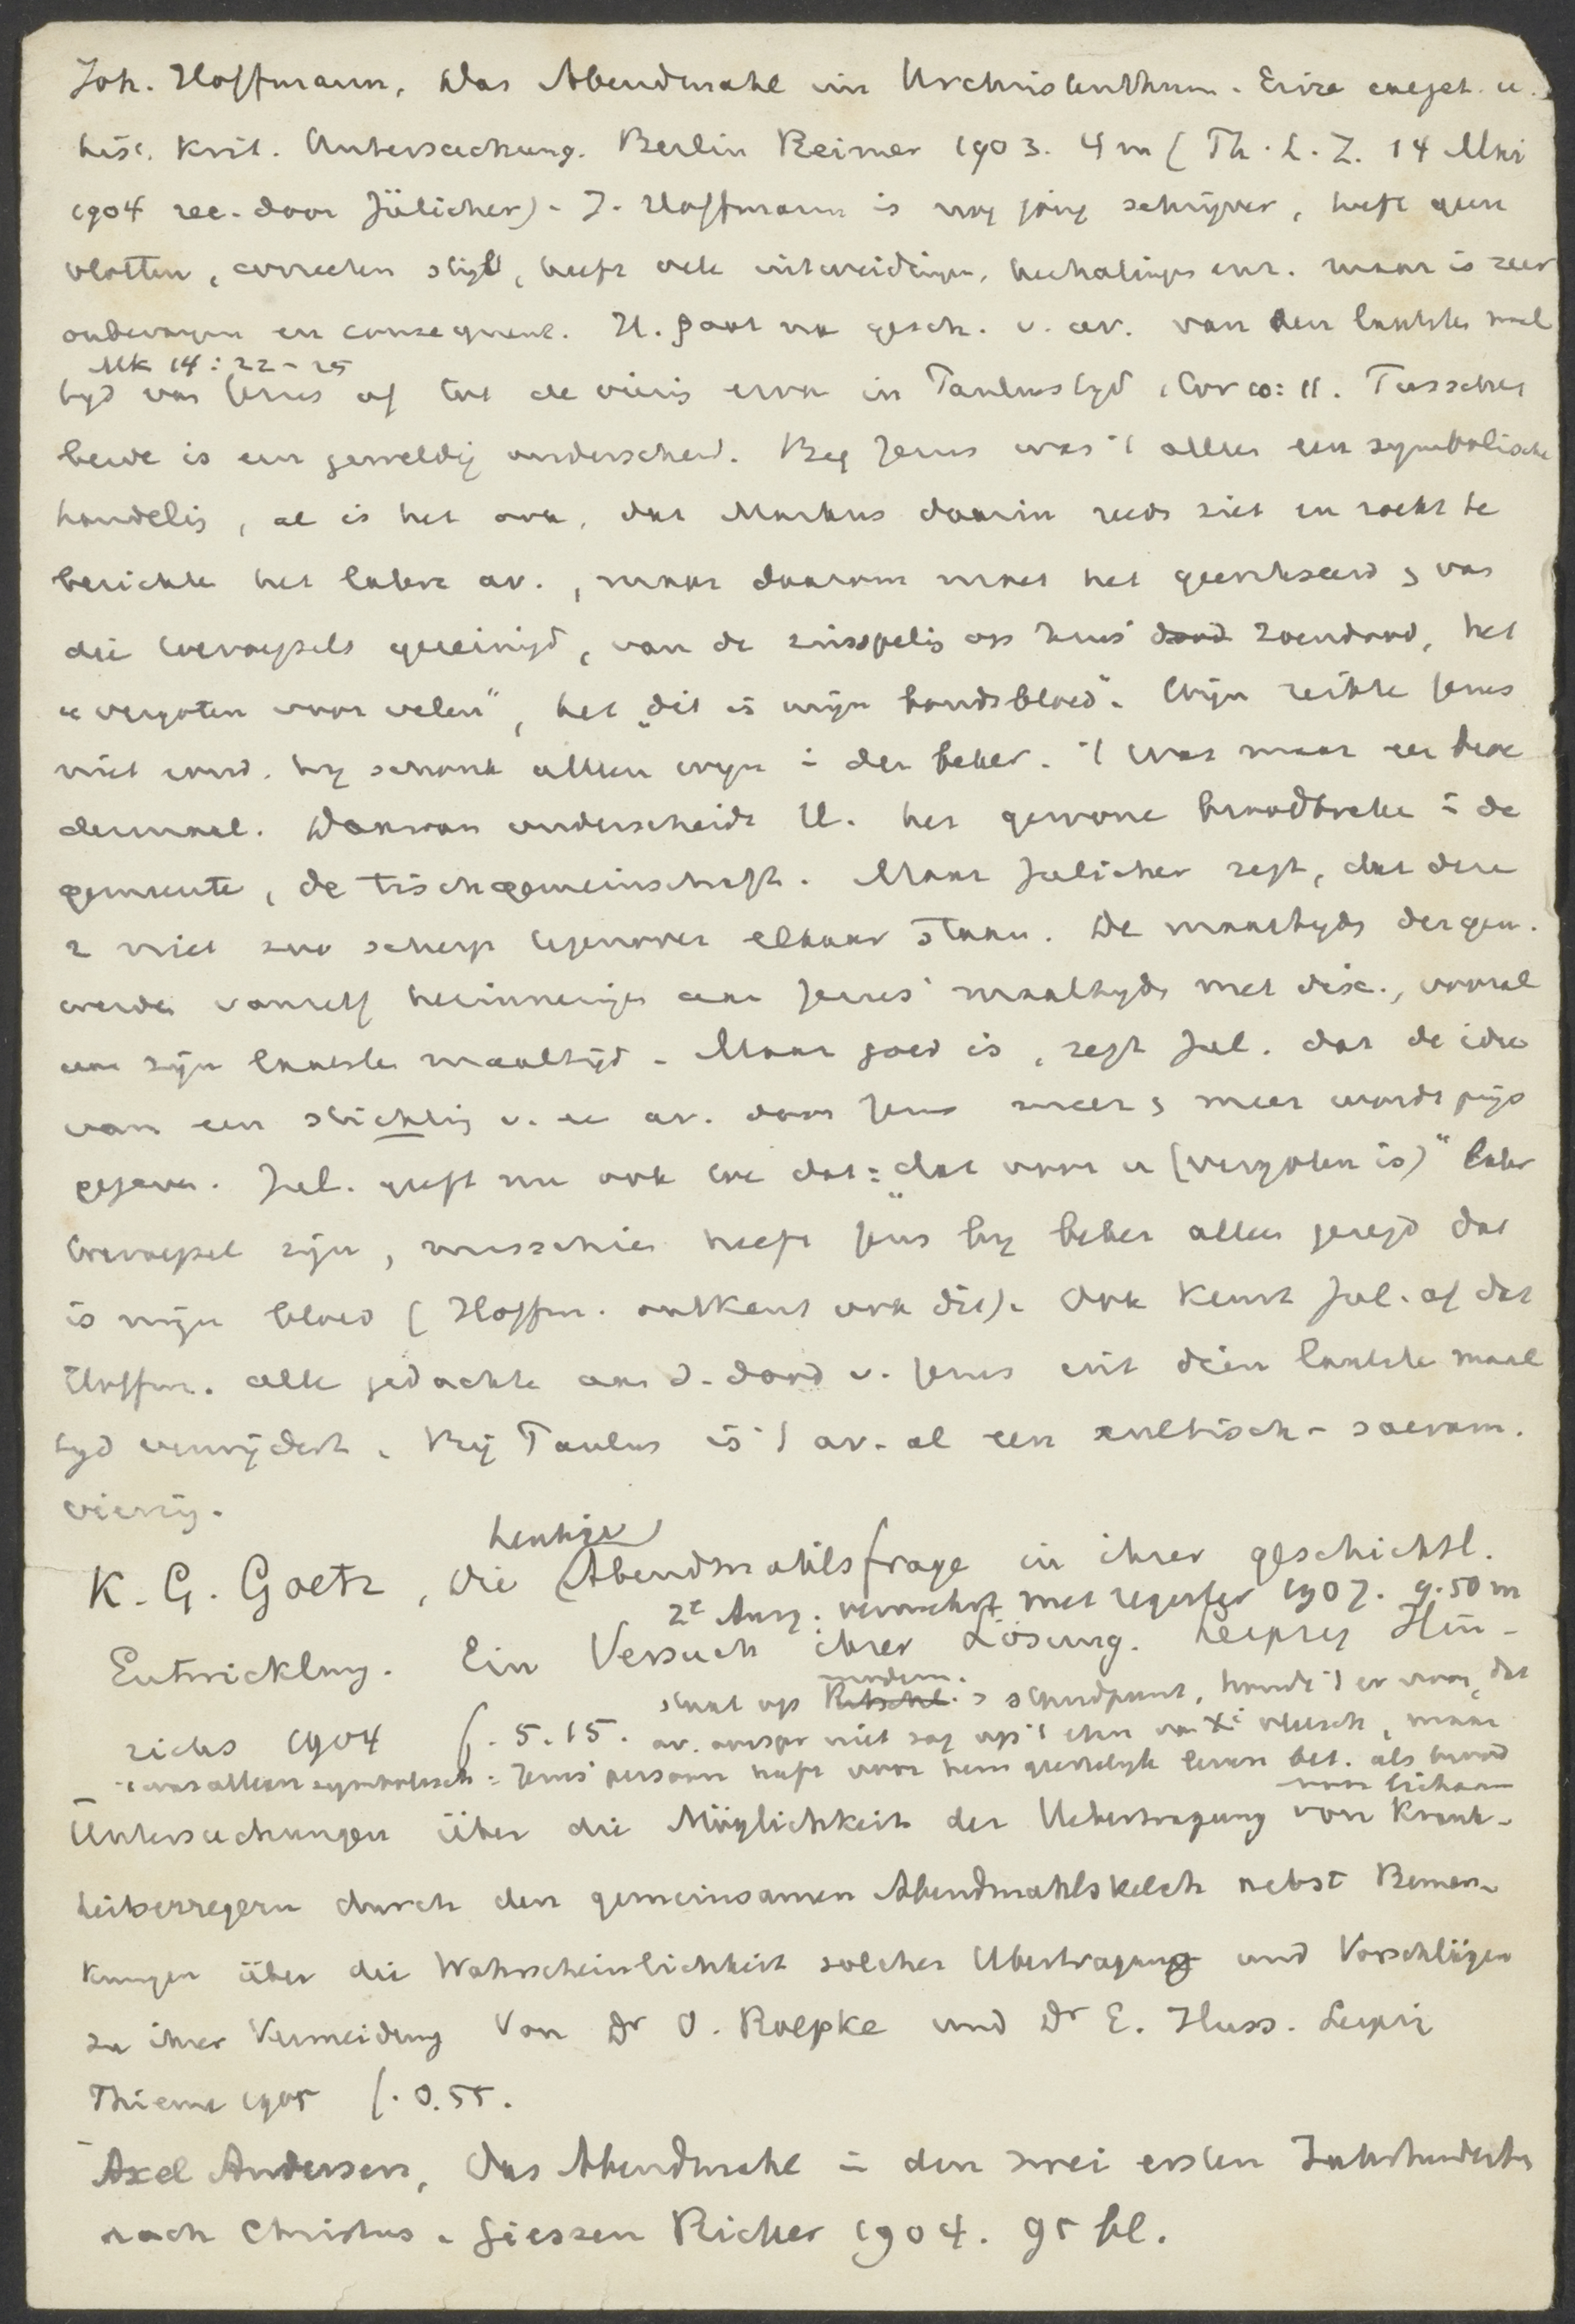 Joh. Hoffmann, Das Abendmahl im Urchristenthum. Eine exeget. u.
hist. krit. Untersuchung. Berlin Reimer 1903. 4 m (Th. L. Z. 14 Mai
1904 rec. door Jülicher). J. Hoffmann is nog jong schrijver, heeft geen
vlotten, correcten stijl, heeft vele uitweidingen, herhalingen enz. maar is zeer
onbevangen en consequent. H. gaat na gesch. v. av. van den laatste maal
Mk 14:22-25
tyd van Jezus af tot de viering ervan in Paulus tyd 1 Cor 10:11. Tusschen
beide is een geweldig onderscheid. Bij Jezus was 't alleen een symbolische
handeling, al is het ook, dat Markus daarin reeds ziet en zoekt te
berichte het latere av., maar daarom moet het gecritiseerd &amp; van
die toevoegsels gereinigd, van de zinspeling op Jezus' dood zoendood, het
"vergoten voor velen", het "dit is mijn bondsbloed". Wijn reikte Jezus
niet rond. hy schonk alleen wyn in den beker. 't Was maar een
maal. Daarvan onderscheidt H. het gewone broodbreke in de
gemeente, de Tischgemeinschaft. Maar Jülicher zegt, dat deze
2 niet zoo scherp tegenover elkaar staan. De maaltyds der gem.
werden vanzelf herinneringen aan Jezus' maaltyds met disc., vooral
aan zijn laatste maaltijd. Maar goed is, zegt Jül. dat de idee
van een stichting v. het av. door Jezus meer &amp; meer wordt prijs
gegeven. Jül. geeft nu ook toe dat: "dat voor u (vergoten is)" later
toevoegsel zijn, misschien heeft Jezus by beker alleen gezegd dat
is mijn bloed (Hoffm. ontkent ook dit). Ook keurt Jül. af dat
Hoffm. alle gedachte aan d. dood v. Jezus uit dien laatste maal
tyd verwijdert. Bij Paulus is 't av. al een cultisch-sacram.
viering.
heutige
K. G. Goetz, Die Abendmahlsfrage in ihrer geschichtl.
2e Ausg. vermehrt met register 1907. 9.50 m
Entwicklung. Ein Versuch ihrer Lösung. Leipzig Hin-
modern.
staat op Ritschl.s standpunt, houdt 't er voor, dat
richs 1904 f. 5.15. av. oorspr niet zag op 't eten van Xi vleesch, maar
't was alleen symbolisch: Jezus' persoon heeft voor hem geestelyk leven bet. als brood
voor lichaam
Untersuchungen über die Möglichkeit der Uebertragung von Krank-
heitserregern durch den gemeinsamen Abendmahlskelch nebst Bemer-
kungen über die Wahrscheinlichkeit solcher Ubertragung und Vorschlägen
zu ihrer Vermeidung Von Dr O. Roepke und Dr E. Huss. Leipzi
Thieme 1905 f. 0.55.
Axel Andersen, Das Abendmahl in den zwei ersten Jahrhunderten
nach Christus. Giessen Ricker 1904. 95 bl.